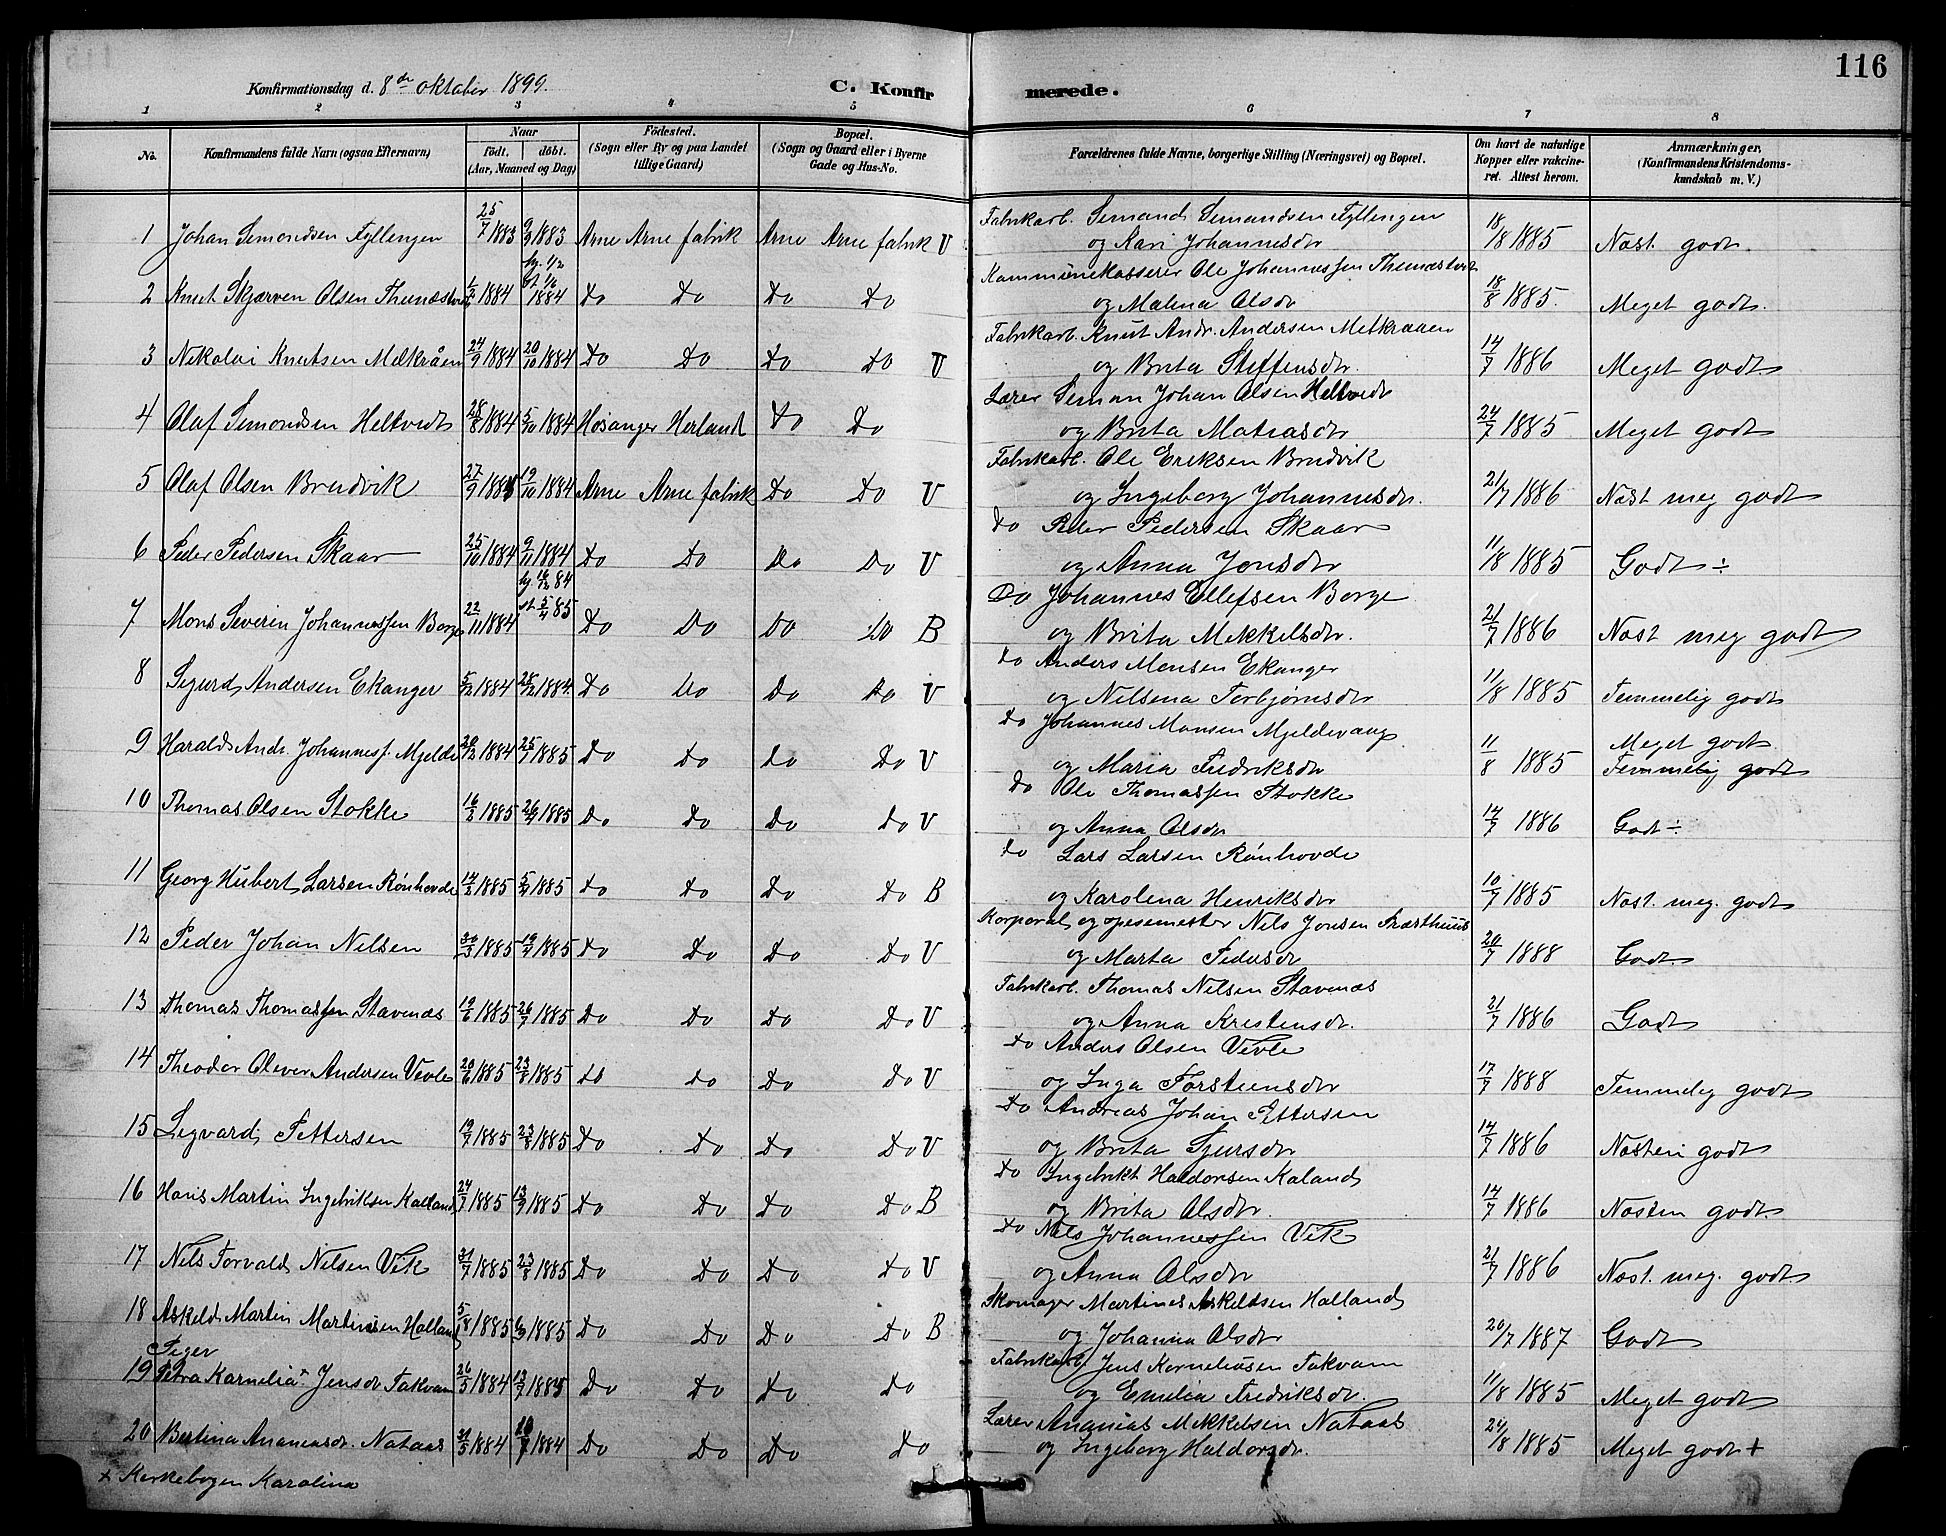 116
Konfirmationsdag d. 8de oktober 1899.
C. Konfirmerede.
1 2 3 4 5 6 7 8
No. Konfirmandens fulde Navn (ogsaa Efternavn) Naar Födt. döbt. (Aar, Maaned og Dag) Födested. (Sogn eller By og paa Landet tillige Gaard) Bopæl. (Sogn og Gaard eller i Byerne Gade og Hus-No. Forældrenes fulde Navne, borgerlige Stilling (Næringsvei) og Bopæl. Om havt de naturlige Kopper eller vakcineret. Attest herom. Anmærkninger, (Konfirmandens Kristendomskundskab m. V.)
1 Johan Simondsen Fyllingen 25/7 1883 9/9 1883 Arne Arne fabrik Arne Arne fabrik V Fabrikarb. Simand Simandsen Fyllingen og Kari Johannesdr 18/8 1885 Næst godt.
2 Knut Skjærven Olsen Thunæstvet 1/2 1884 1884 Do Do Do Do Kommunekasserer Ole Johannessen Thunæstvet og Malena Olsdr 18/8 1885. Meget godt.
3 Nikolai Knutsen Melkråen 24/9 1884 20/10 1884 Do Do Do Do V Fabrikarb. Knut Andr. Andersen Melkraaen og Brita Steffensdr. 14/7 1886 Meget godt
4 Olaf Simondsen Heltvedt 28/8 1884 5/10 1884 Hosanger Herland Do Do Lærer Simon Johan Olsen Heltvedt og Brita Matiasdr 24/7 1885 Meget godt
5 Olaf Olsen Brudvik 27/9 1884 19/10 1884 Arne Arne fabrik Do Do V Fabrikarb. Ole Eriksen Brudvik og Ingeborg Johannesdr. 21/7 1886 Næst meg godt
6 Peder Pedersen Skaar 25/10 1884 9/11 1884 Do Do Do Do V Do Peder Pedersen Skaar og Anna Jonsdr 11/8 1885 Godt ÷
7 Mons Severin Johannessen Borge 22/11 1884 hj 16/12 84 st 5/4 85 Do Do Do Do B Do Johannes Ellefsen Borge og Brita Mikkelsdr. 21/7 1886 Næst meg godt
8 Sigurd Andersen Ekanger 5/12 1884 28/12 1884. Do Do Do Do V Do Anders Monsen Ekanger og Nilsina Torbjørnsdr 11/8 1885 Temmelig godt
9 Harald Andr. Johannesf. Mjelde 20/12 1884 25/1 1885 Do Do Do Do V Do Johannes Monsen Mjeldevang og Maria Fredriksdr 11/8 1885 Meget godt Temmelig godt
10 Thomas Olsen Stokke 16/2 1885 26/4 1885 Do Do Do Do V Do Ole Thomassen Stokke og Anna Olsdr 14/7 1886 Godt ÷
11 Georg Hubert Larsen Rönhovde 14/2 1885 5/4 1885 Do Do Do Do B Do Lars Larsen Rönhovde og Karolina Henriksdr 10/7 1885 Næst. meg. godt
12 Peder Johan Nilsen 30/3 1885 19/4 1885 Do Do Do Do V Korporal og spisemester Nils Jonsen Præsthuus og Marta Pedersdr 20/7 1888 Godt.
13 Thomas Thomassen Stavenæs 19/6 1885 26/7 1885 Do Do Do Do V Fabrikarb. Thomas Nilsen Stavenæs og Anna Kristensdr. 21/7 1886 Godt
14 Theodor Oliver Andersen Vevle 20/6 1885 23/8 1885 Do Do Do Do V Do Anders Olsen Vevle og Inga Torsteinsdr 17/7 1888 Temmelig godt
15 Sigvard Pettersen 19/7 1885 23/8 1885 Do Do Do Do V Do Andreas Johan Pettersen og Brita Sjursdr 14/7 1886 Næsten godt
16 Hans Martin Ingebriktsen Kalland 24/7 1885 13/9 1885 Do Do Do Do B Do Ingebrikt Haldorsen Kaland og Brita Olsdr. 14/7 1886 Næsten godt
17 Nils Torvald Nilsen Vik 31/7 1885 23/8 1885 Do Do Do Do V Do Nils Johannessen Vik og Anna Olsdr 21/7 1886 Næst. meg. godt
18 Askeld Martin Martinsen Halland 5/8 1885 6/9 1885 Do Do Do Do B Skomager Martines Askeldsen Halland og Johanna Olsdr 20/7 1887 Godt
Piger
19 Petra Kornelia x Jensdr Takvam 26/5 1884 13/7 1884 Do Do Do Do Fabrikarb. Jens Korneliusen Takvam og Emilia Fredriksdr. 11/8 1885 Meget godt
20 Bertina Ananiasdr. Nataas 31/5 1884 1884 Do Do Do Do Lærer Ananias Mikkelsen Nataas og Ingeborg Haldorsdr. 24/8 1885 Meget godt +
x Kirkebogen Karolina